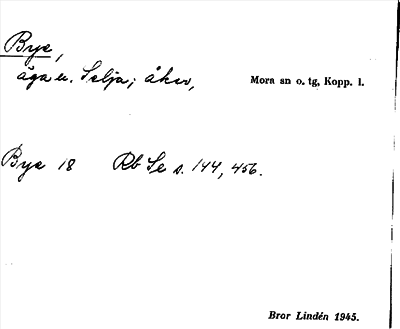 Bye,
äga u. Selja; åker,
Mora sn o. tg, Kopp. l.
Bye 18 Rb Se s. 144, 456.
Bror Lindén 1945.